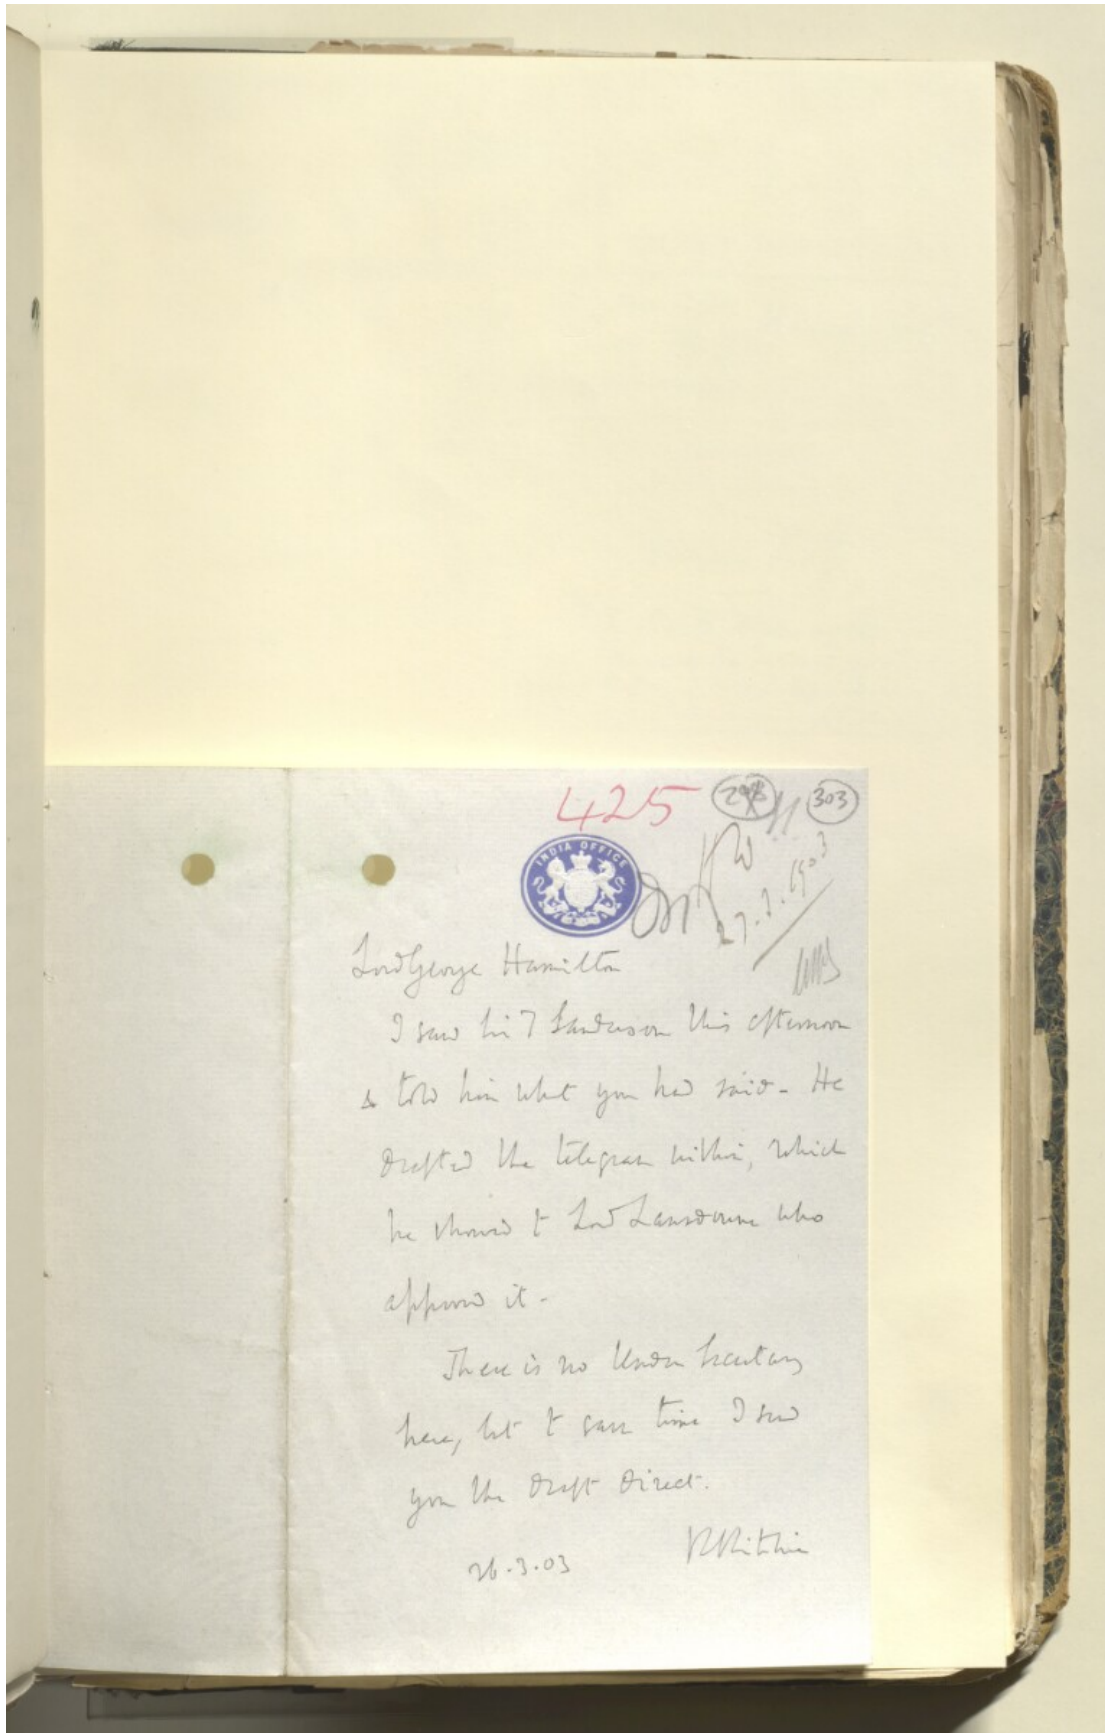 425
298
303
INDIA OFFICE
27.3.1903
Lord George Hamilton
I saw Sir T Sanderson this afternoon
& told him what you had said - He
drafted the telegram within, which
he showed to Lord Lansdowne who
approved it -
There is no Under Secretary
here, but to save time I send
you the draft direct.
R Ritchie
26.3.03